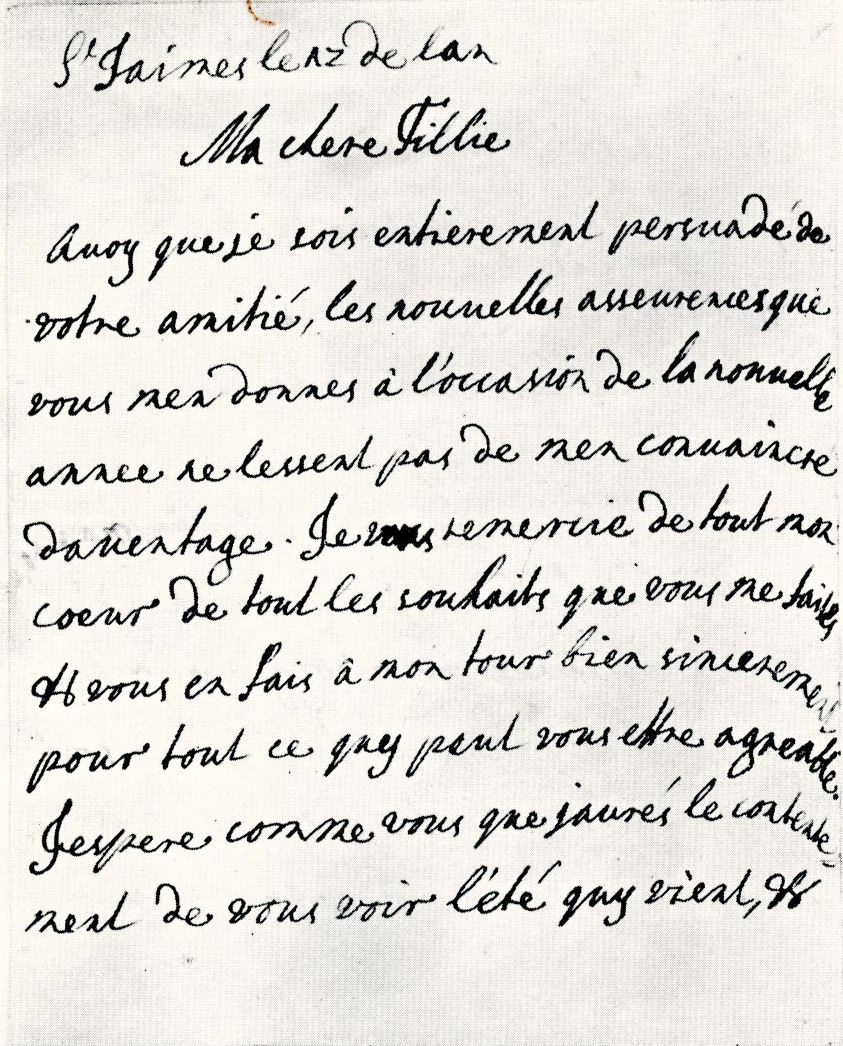 St Jaimes le nz de lan
Ma chere Fillie
Quoy que je sois entierement persuadé de
votre amitié, les nouvelles asseurences que
vous men donnes à l'occasion de la nouvelle
annee ne lessent pas de men convaincre
daventage. Je vous remercie de tout mon
coeur de tout les souhaits que vous me faites
& vous en fais à mon tour bien sincerement
pour tout ce quy peut vous ettre agreable.
Jespere comme vous que jaurés le contente=
ment de vous voir l'été quy vient, &